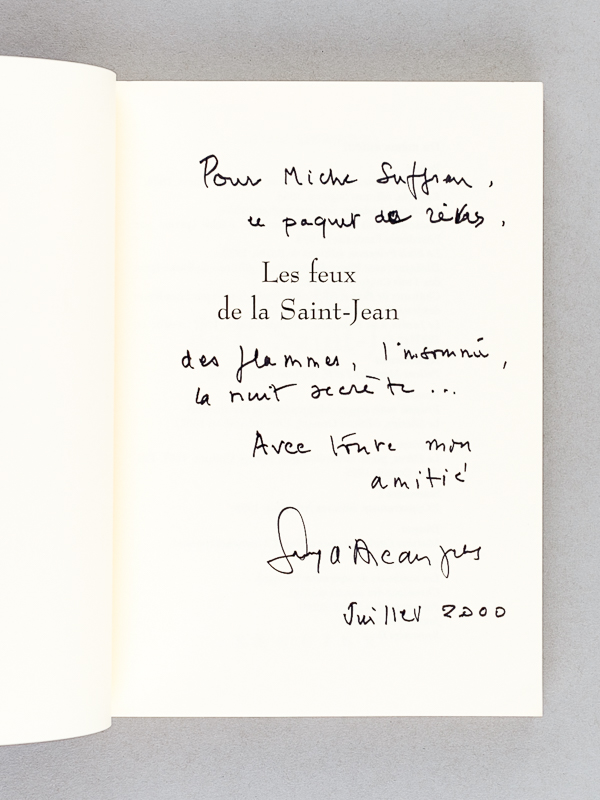 Pour Michel Suffran,
ce paquet de rêves,
Les feux
de la Saint-Jean
des flammes, l'insomnie,
la nuit secrète...
Avec toute mon
amitié
d'Arcangues
Juillet 2000